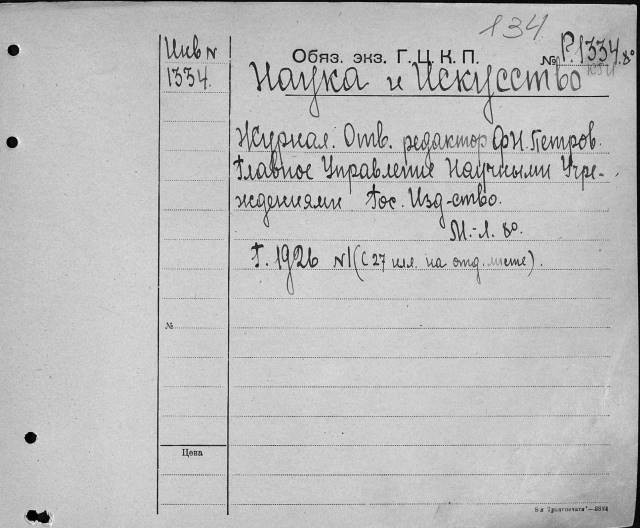 134
Инв N
1334.
Обяз. экз. Г. Ц. К. П.
№ Р.1334.8°
Наука и Искусство
Журнал. Отв. редактор Ф.Н. Петров.
Главное Управление Научными Учре-
ждениями Гос. Изд-ство.
М.-Л. 8°.
Г. 1926 N1 (с 27 илл. на отд. листе).
№
Цена